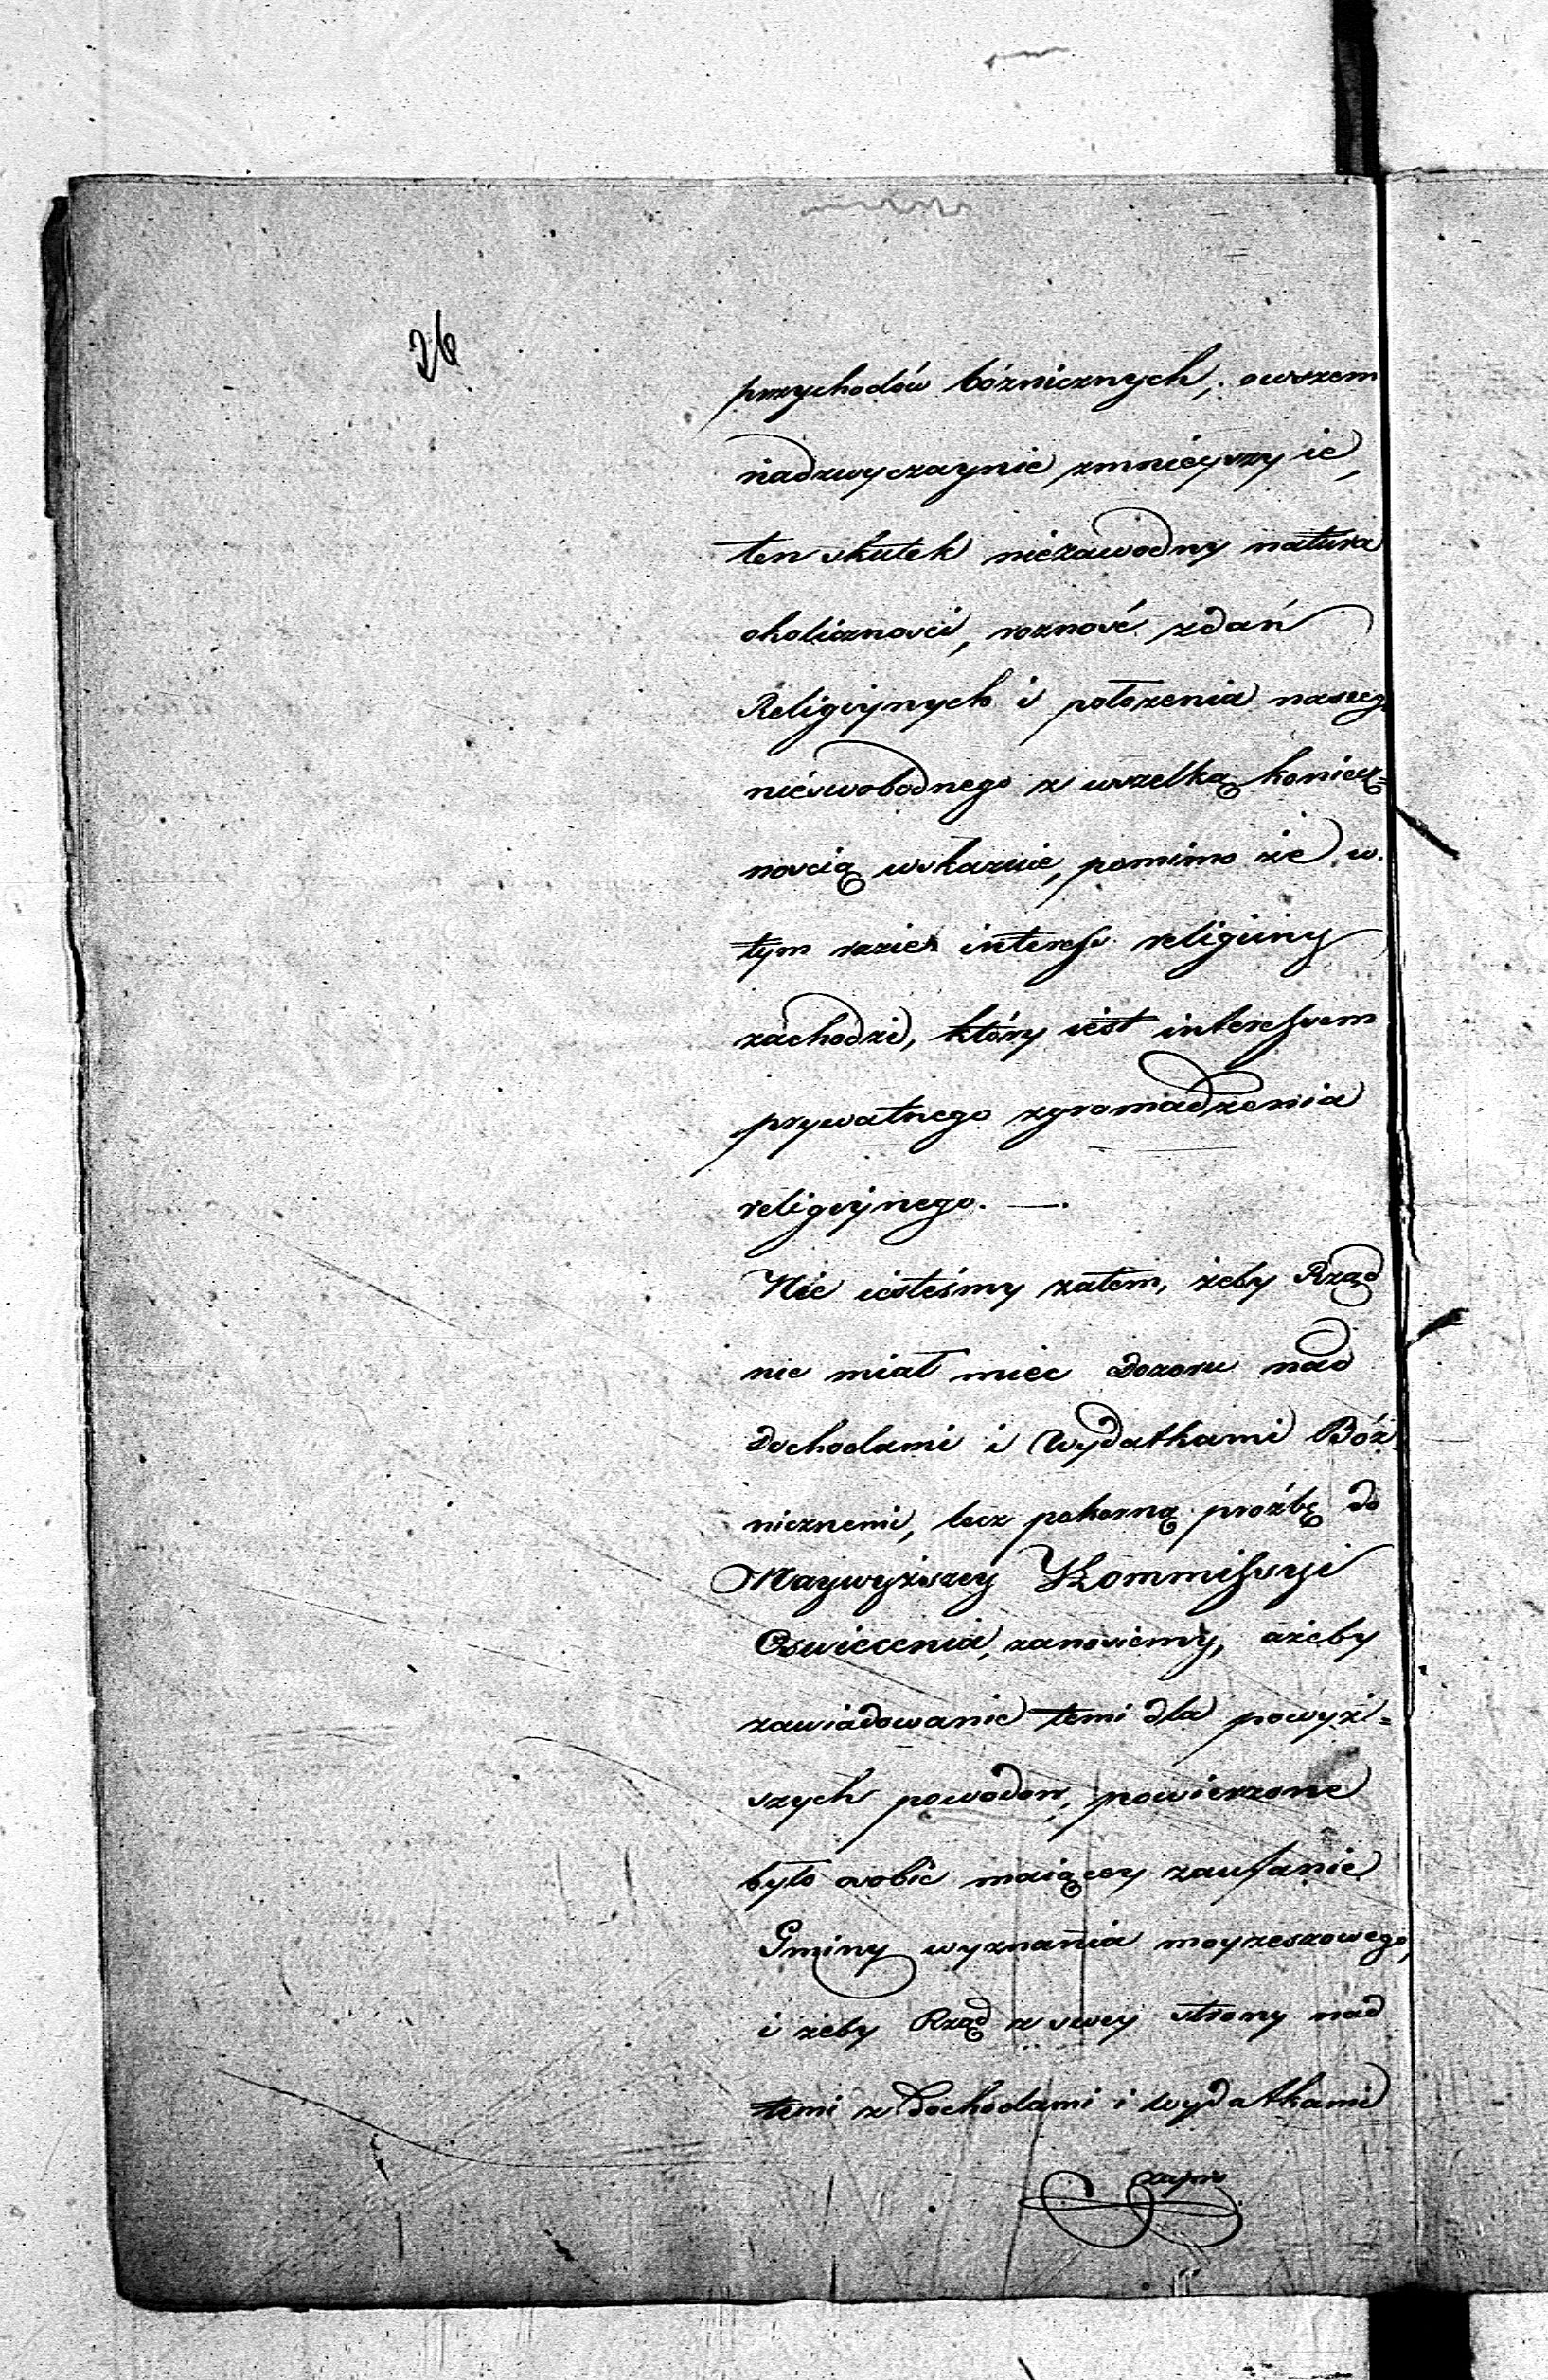 26
przychodów bóżnicznych, owszem
nadzwyczaynie zmnieyszy ie,
ten skutek niezawodny natura
okolicznosci, rozność zdań
Religiynych i położenia naszeg
nieswobodnego z wszelką koniecz=
noscią wskazuie, pomimo że w
tym razie interess religiiny
zachodzi, który iest interessem
prywatnego zgromadzenia
religiynego. —.
Nie iesteśmy zatem, żeby Rząd
nie miał miec dozoru nad
dochodami i wydatkami Bóż
nicznemi, lecz pokorną proźbę do
Naywyższey Kommissyi
Oswiecenia, zanosiemy, ażeby
zawiadowanie temi dla powyż=
szych powodow, powierzone
było osobie maiącey zaufanie
Gminy wyznania moyzeszowego,
i żeby Rząd z swey strony nad
temi z dochodami i wydatkami